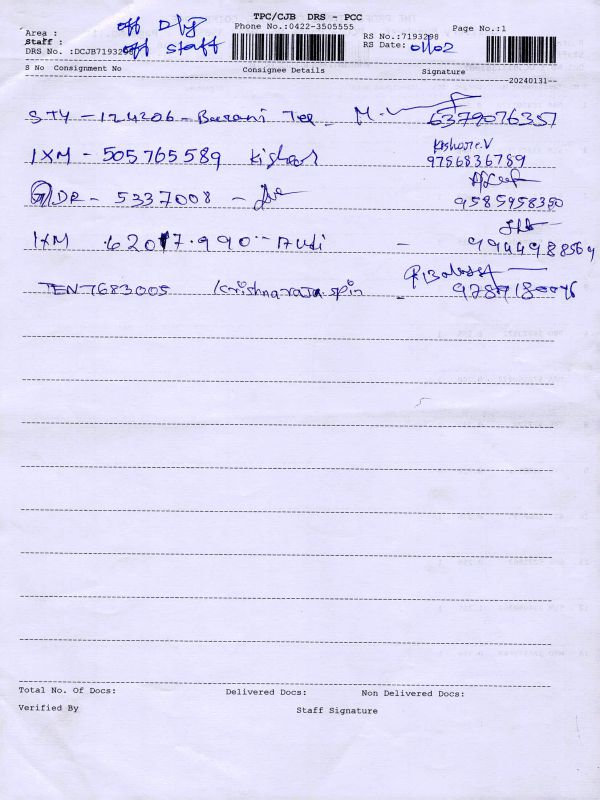 TPC/CJB DRS - PCC
Phone No.:0422-3505555
Page No.:1
Area : off Dly
Staff : off staff
RS No.:7193298
RS Date: 01/02
DRS No. :DCJB7193298
S No Consignment No Consignee Details Signature
20240131
STY - 124206 - Barani Tex 6379076357
IXM - 505765589 Kishore Kishore.V
9756836789
DR - 5337008 - 9585958350
IXM 62017.990 - Audi - 9944988564
TEN 7683005 Krishnaraja spin -
Total No. Of Docs: Delivered Docs: Non Delivered Docs:
Verified By Staff Signature